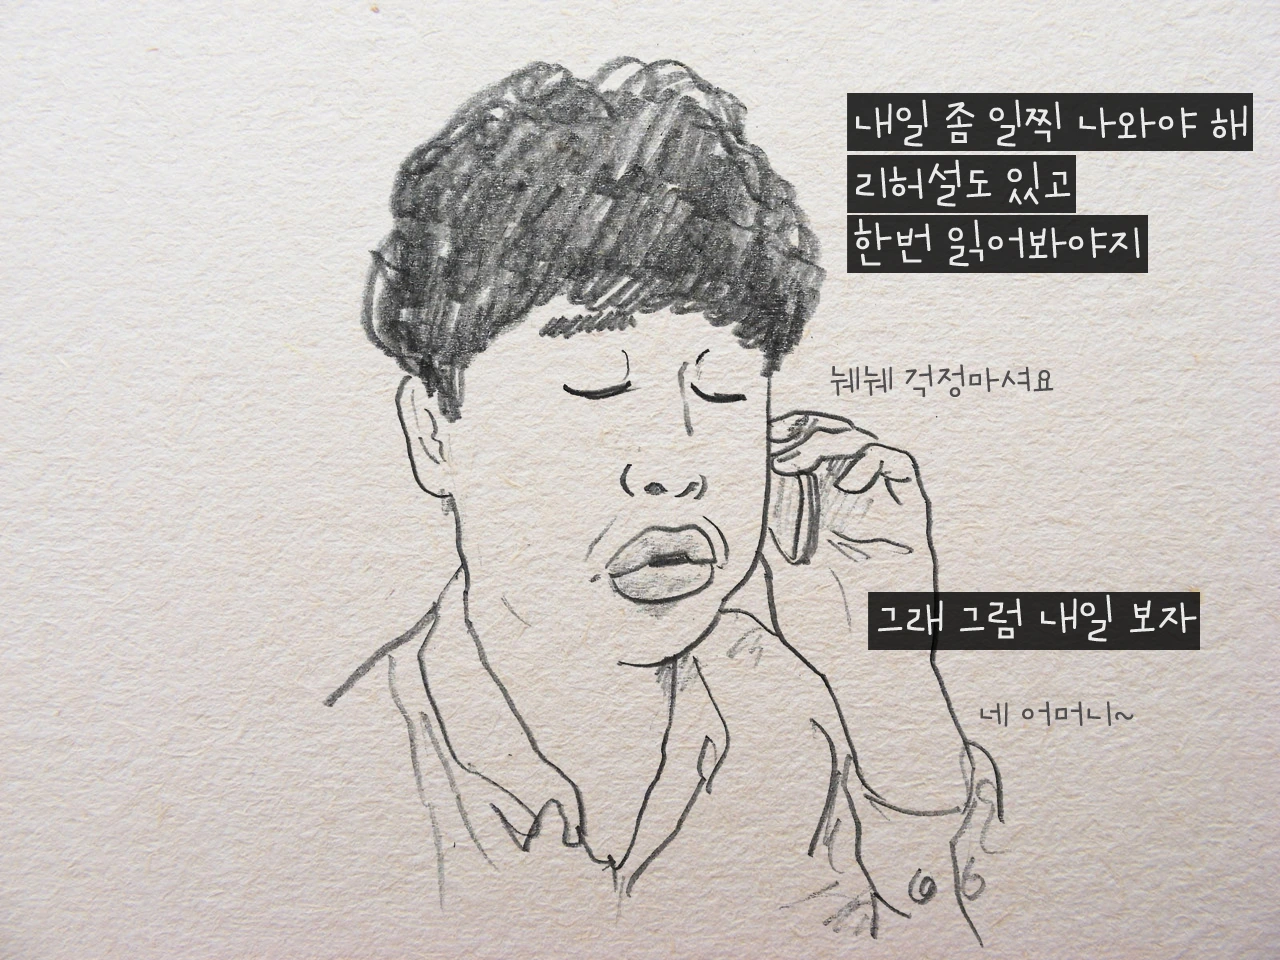 내일 좀 일찍 나와야 해
리허설도 있고
한번 읽어봐야지
눼눼 걱정마셔요
그래 그럼 내일 보자
네 어머니~